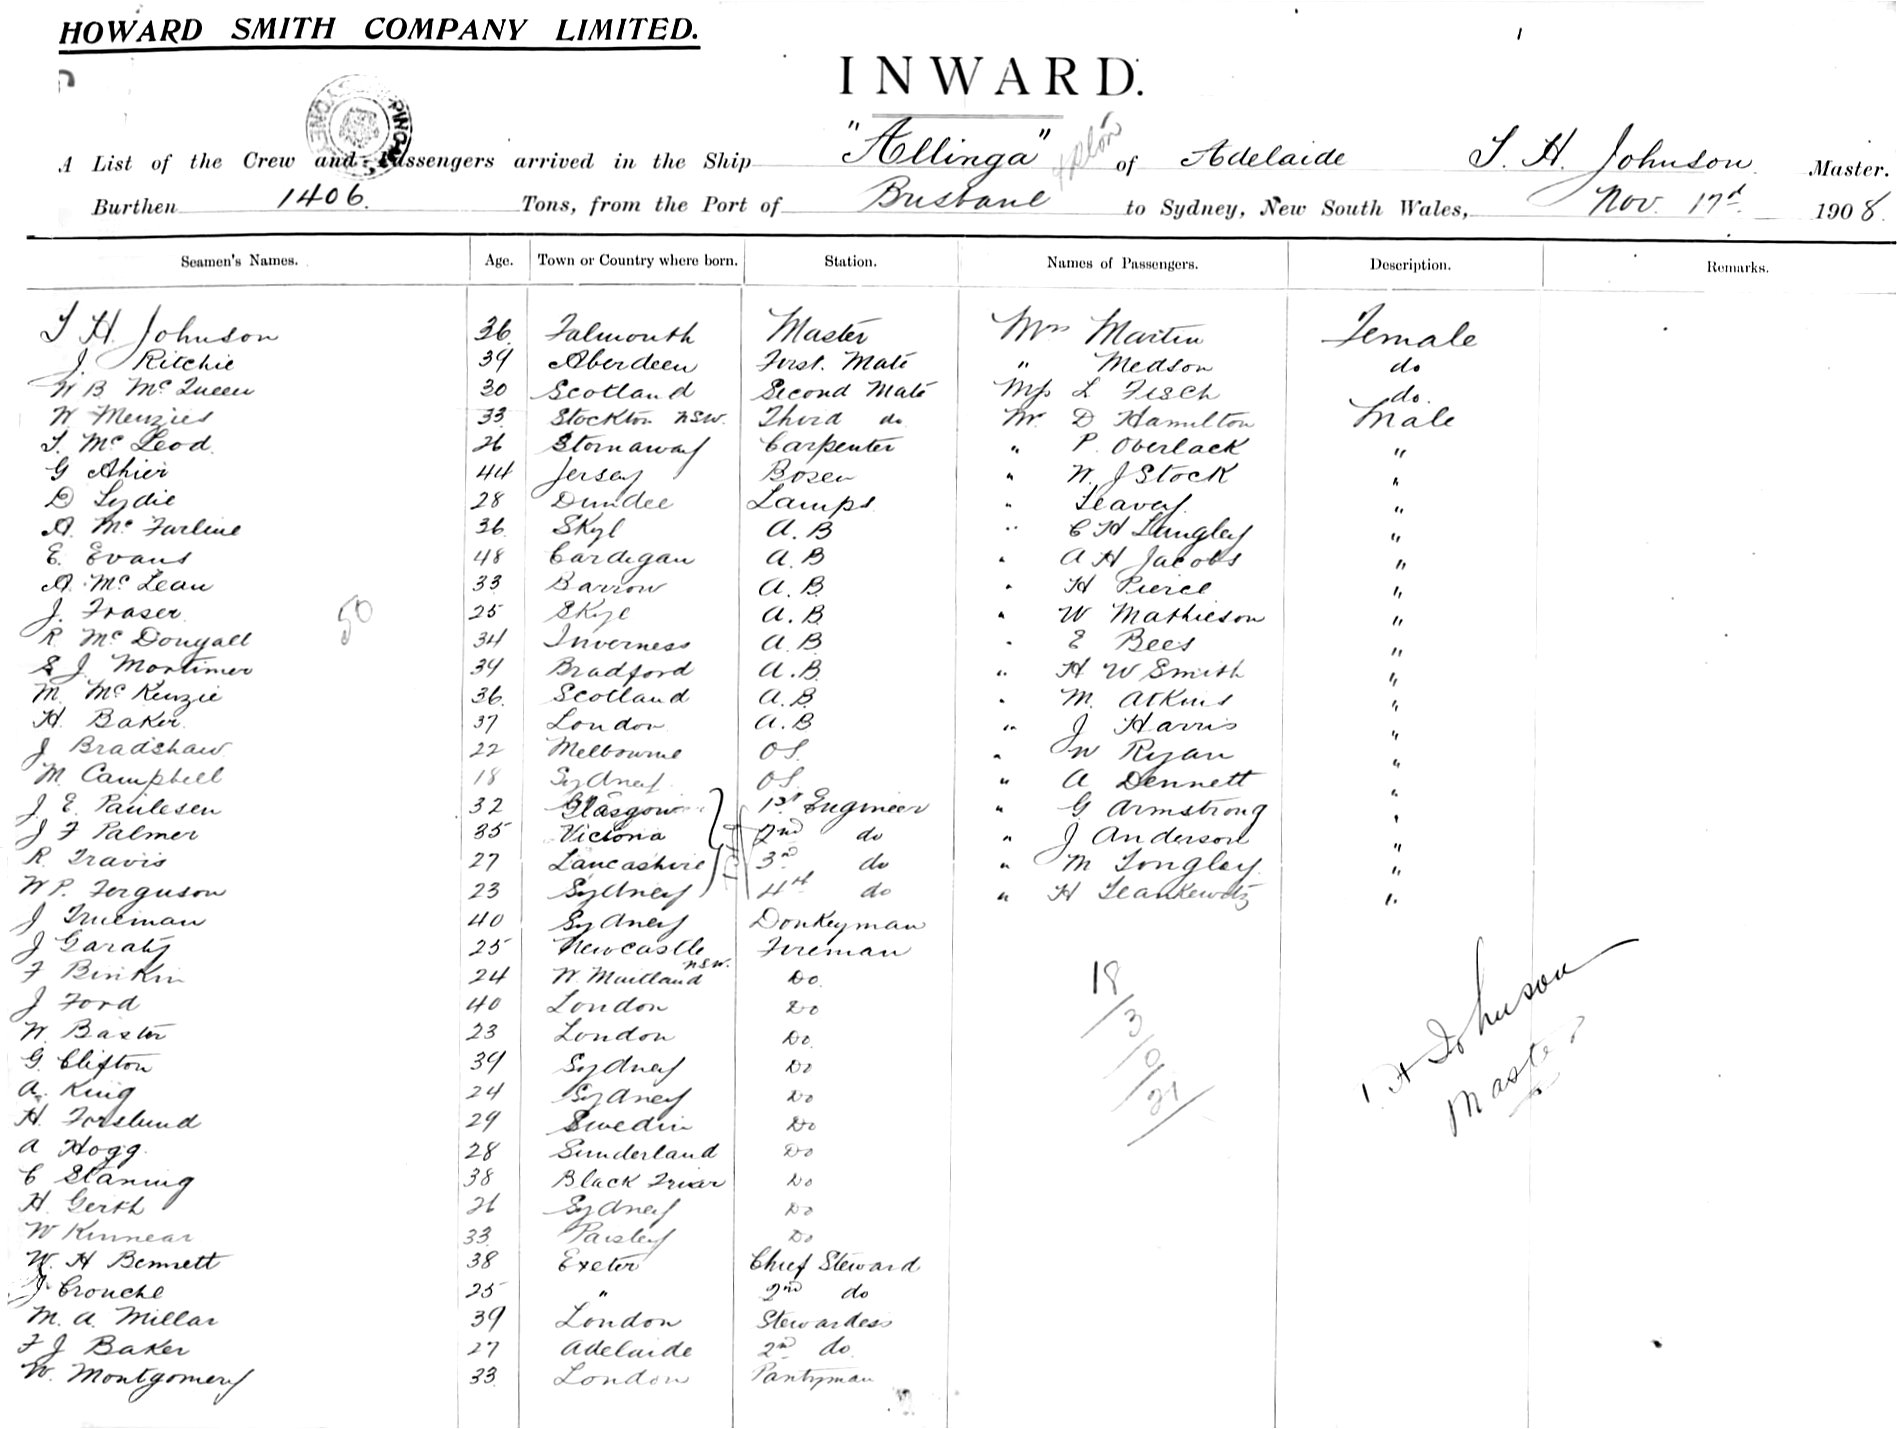 HOWARD SMITH COMPANY LIMITED.
INWARD.
A List of the Crew and Passengers arrived in the Ship "Allinga" of Adelaide T. H. Johnson Master.
Burthen 1406. Tons, from the Port of Brisbane to Sydney, New South Wales, Nov. 17d 1908.
Seamen's Names. Age. Town or Country where born. Station. Names of Passengers. Description. Remarks.
T H Johnson 36 Falmouth Master Mrs Martin Female
J. Ritchie 39 Aberdeen First. Mate " Medson do
W B McQueen 30 Scotland Second Mate Miss L Fisch do.
W Menzies 33 Stockton NSW. Third do Mr D Hamilton Male
T. McLeod. 26 Stornaway Carpenter " P. Oberlack "
G Ahier 44 Jersey Bosen " W. J Stock "
D Lydie 28 Dundee Lamps. " Leavey "
A. McFarline 36 Skye A. B " C H Langley "
E. Evans 48 Cardigan A. B " A H Jacobs "
A. McLean 33 Barrow A. B. " H Pierce "
J. Fraser. 50 25 Skye A. B. " W Mathieson "
R McDougall 34 Inverness A. B. " E Bees "
S J. Mortimer 39 Bradford A. B. " H W Smith "
M. McKenzie 36 Scotland A. B. " M. Atkins "
H. Baker. 37 London A. B " J Harris "
J Bradshaw 22 Melbourne OS. " W Ryan "
M. Campbell 18 Sydney OS. " A Dennett "
J. E. Paulesen 32 Glasgow 1st Engineer " G Armstrong "
J F Palmer 35 Victoria 2nd do " J Anderson "
R. Travis 27 Lancashire 3rd do " M Longley. "
W P. Ferguson 23 Sydney 4th do " H Leankewitz "
J Trueman 40 Sydney Donkeyman
J Garaty 25 Newcastle Fireman
F Binkin 24 W. Maitland NSW. Do.
J Ford 40 London Do
W. Baxter 23 London Do.
G. Clifton 39 Sydney Do
A. King 24 Sydney Do
H. Forslund 29 Swedin Do
A Hogg. 28 Sunderland Do
C Staning 38 Black Friar Do
H. Gerth 26 Sydney Do
W Kinnear 33 Paisley Do
W. H Bennett 38 Exeter Chief Steward
J. Crouche 25 " 2nd do
M. A. Millar 39 London Stewardess
F J Baker 27 Adelaide 2nd do.
W. Montgomery 33 London Pantryman
18
3
0
21
T H Johnson
Master